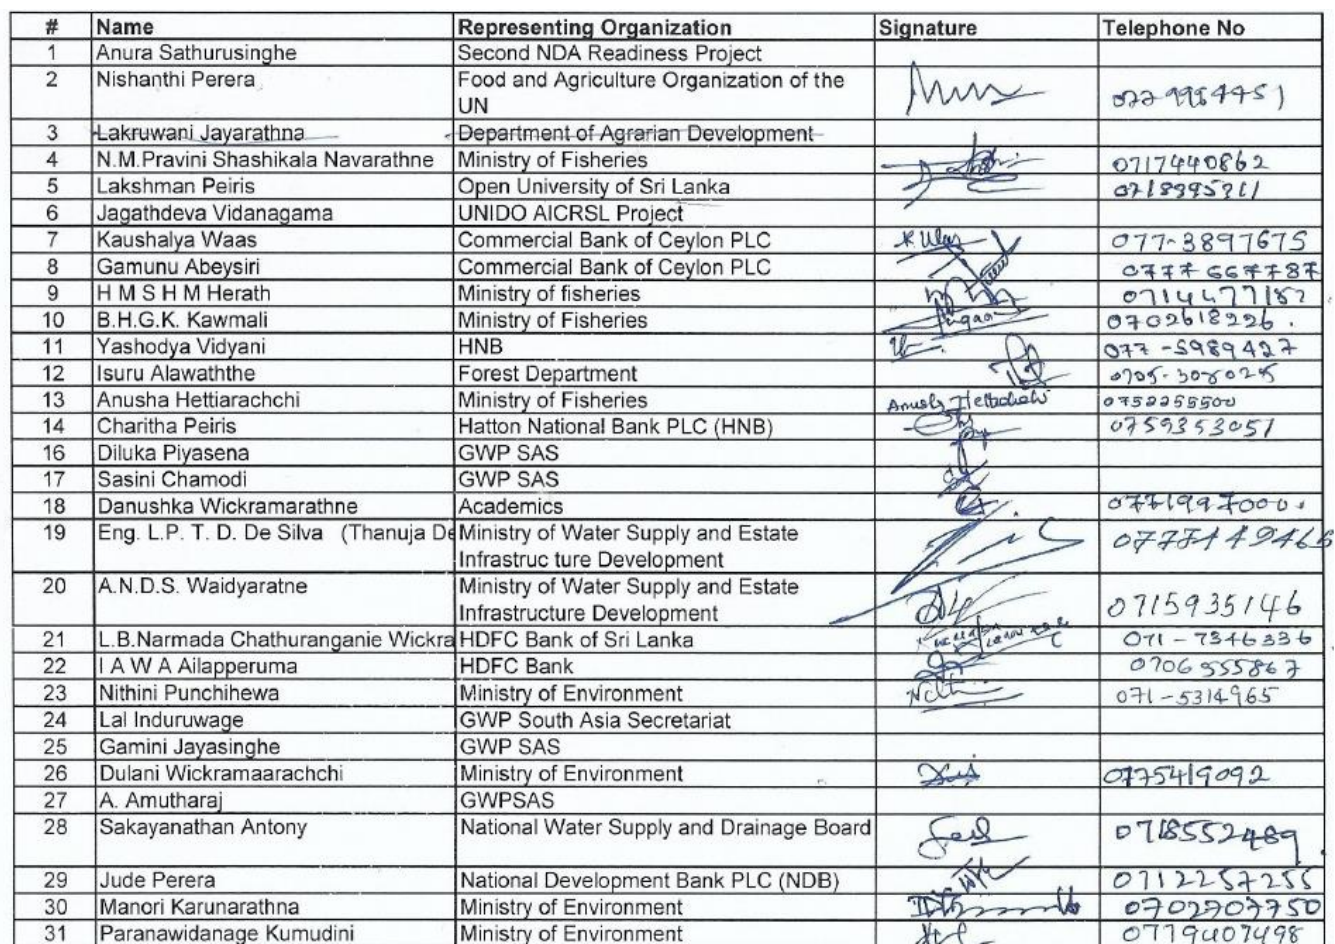 # Name Representing Organization Signature Telephone No
1 Anura Sathurusinghe Second NDA Readiness Project
2 Nishanthi Perera Food and Agriculture Organization of the
UN
3 Lakruwani Jayarathna Department of Agrarian Development
4 N.M.Pravini Shashikala Navarathne Ministry of Fisheries 0717440862
5 Lakshman Peiris Open University of Sri Lanka
6 Jagathdeva Vidanagama UNIDO AICRSL Project
7 Kaushalya Waas Commercial Bank of Ceylon PLC 077-3897675
8 Gamunu Abeysiri Commercial Bank of Ceylon PLC 0777667787
9 H M S H M Herath Ministry of fisheries
10 B.H.G.K. Kawmali Ministry of Fisheries 0702618226.
11 Yashodya Vidyani HNB 077-5989427
12 Isuru Alawaththe Forest Department
13 Anusha Hettiarachchi Ministry of Fisheries 0752255500
14 Charitha Peiris Hatton National Bank PLC (HNB) 0759353051
16 Diluka Piyasena GWP SAS
17 Sasini Chamodi GWP SAS
18 Danushka Wickramarathne Academics 0771997000.
19 Eng. L.P. T. D. De Silva (Thanuja De Ministry of Water Supply and Estate
Infrastruc ture Development
20 A.N.D.S. Waidyaratne Ministry of Water Supply and Estate 0715935146
Infrastructure Development
21 L.B.Narmada Chathuranganie Wickra HDFC Bank of Sri Lanka 071-7346336
22 I A W A Ailapperuma HDFC Bank 0706555867
23 Nithini Punchihewa Ministry of Environment 071-5314965
24 Lal Induruwage GWP South Asia Secretariat
25 Gamini Jayasinghe GWP SAS
26 Dulani Wickramaarachchi Ministry of Environment 0775419092
27 A. Amutharaj GWPSAS
28 Sakayanathan Antony National Water Supply and Drainage Board 0718552489
29 Jude Perera National Development Bank PLC (NDB) 0712257255
30 Manori Karunarathna Ministry of Environment 0702707750
31 Paranawidanage Kumudini Ministry of Environment 0779407498